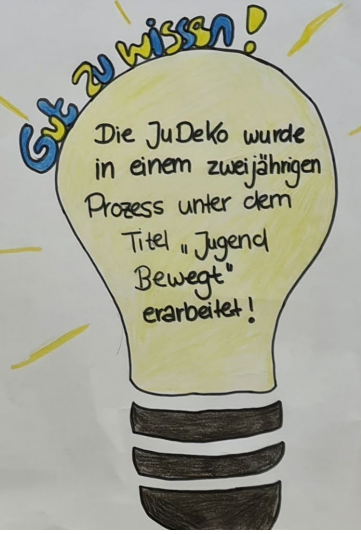 Gut zu wissen!
Die JuDeKo wurde
in einem zweijährigen
Prozess unter dem
Titel „Jugend
Bewegt“
erarbeitet!